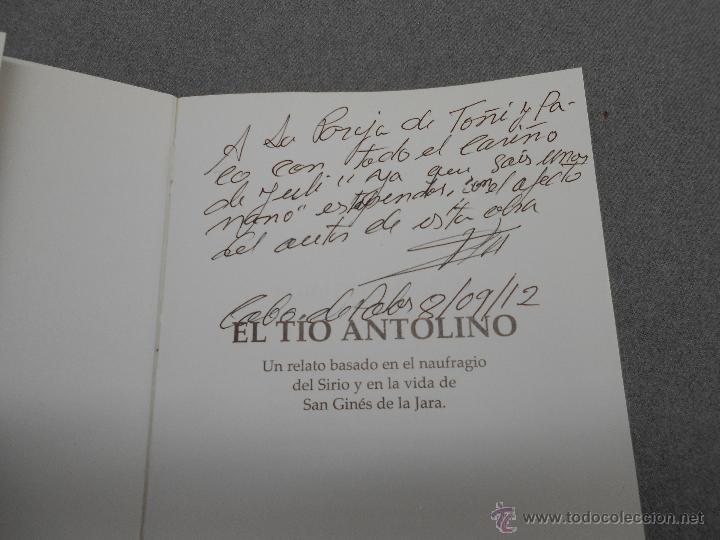 A la Pareja de Toñi y Pa-
co con todo el Cariño
de Juli" ya que sois unos
mano" estupendos, con el afecto
del autor de esta obra
Cabo de Palos 8/09/12
EL TIO ANTOLINO
Un relato basado en el naufragio
del Sirio y en la vida de
San Ginés de la Jara.
© www.todocoleccion.net